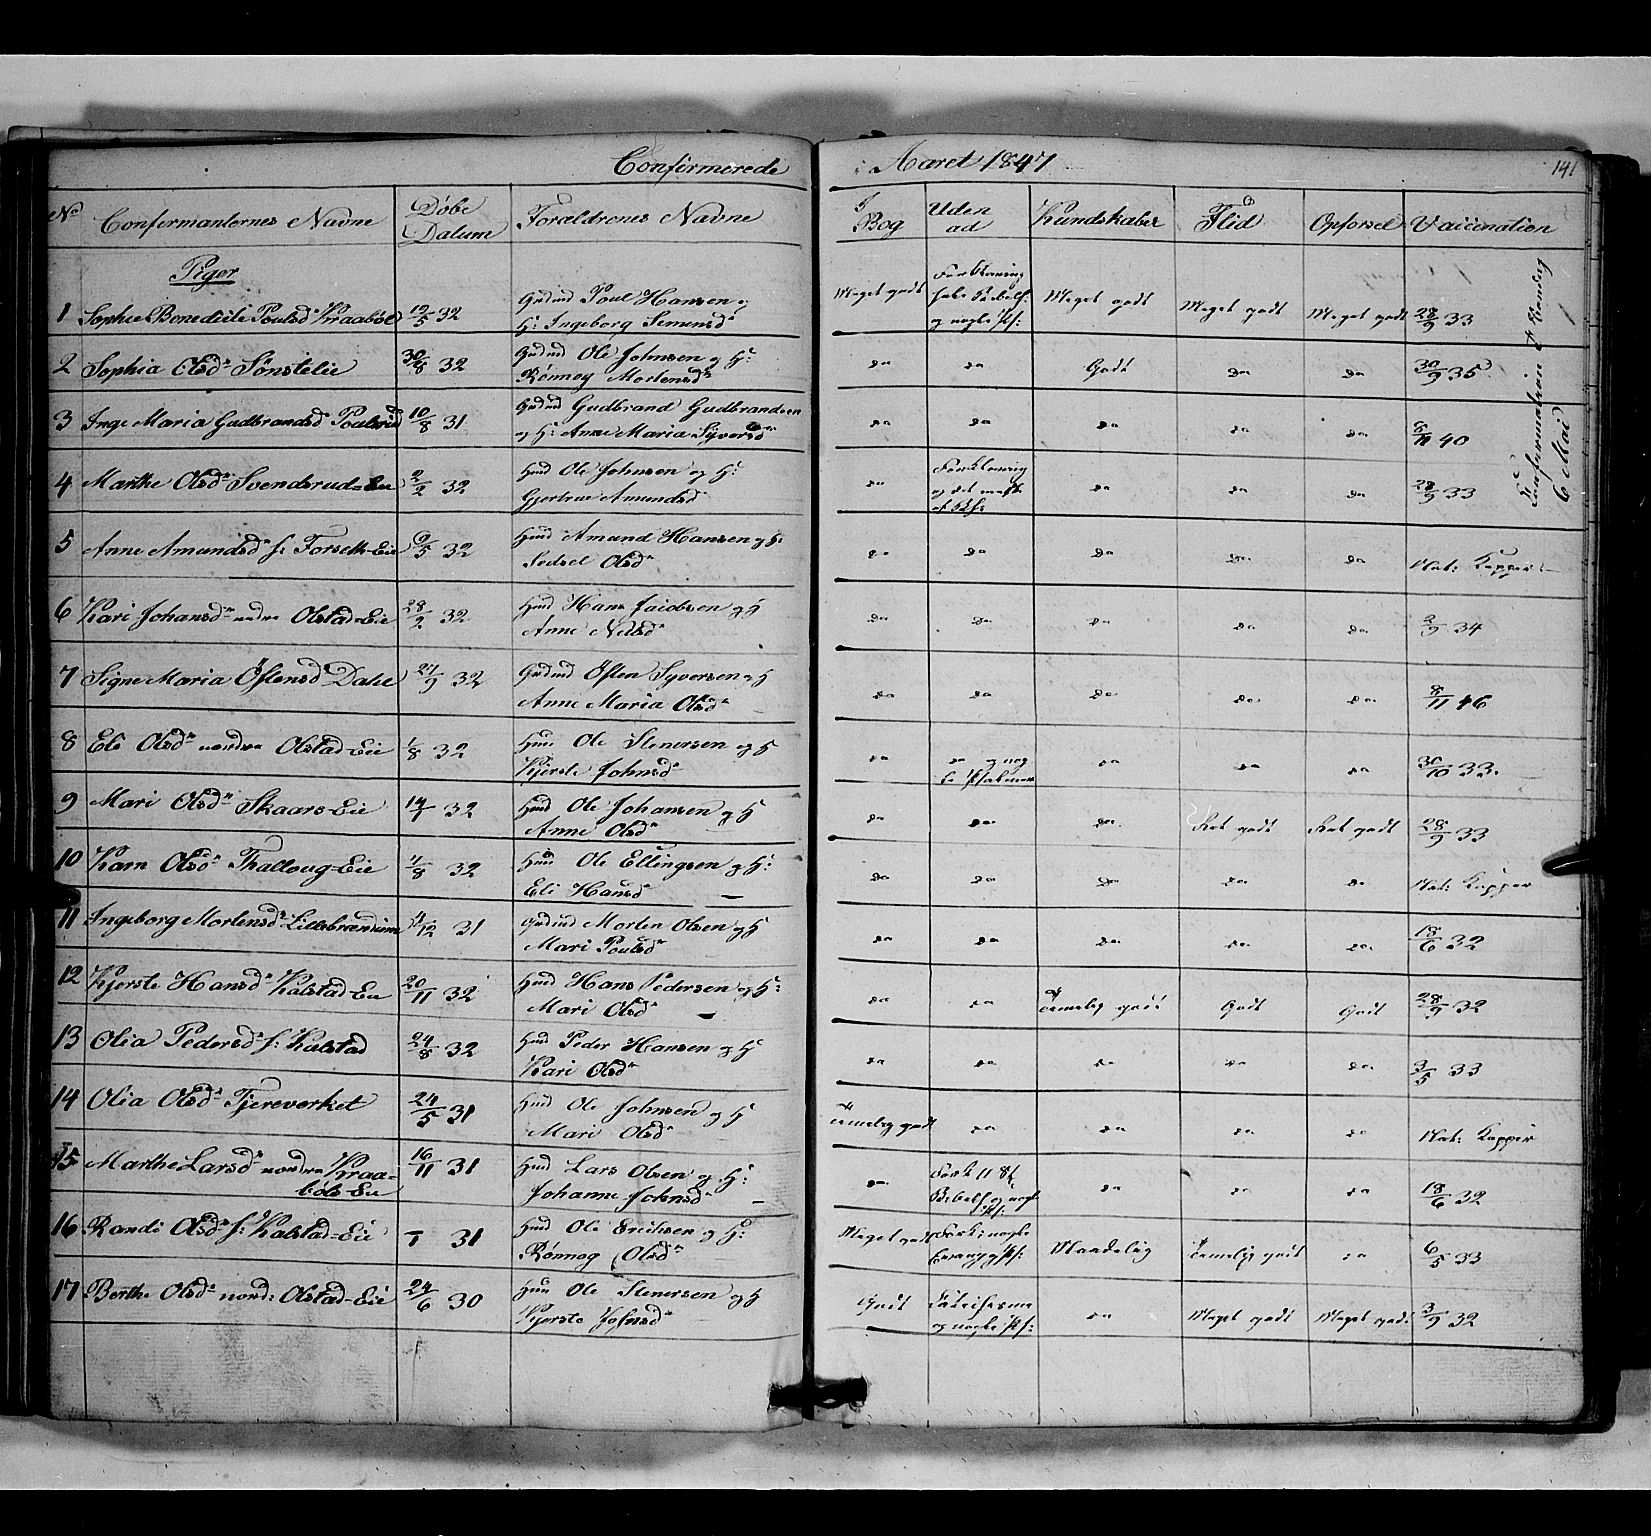 Confirmerede i Aaret 1847
141
No Confirmanternes Navne Døbe Datum Forældrenes Navne I Bog Uden ad Kundskaber Flid Opførsel Vaccination
Piger
1 Sophie Benedicte Poulsdr Kraabøl 12/5 32 Grdmd Poul Hansen og H: Ingeborg Simensdr Meget godt Forklaring og nogle Ps: Meget godt Meget godt Meget godt 28/9 33
2 Sophia Olsdr Sønstelie 30/8 32 Grdmd Ole Johnsen og H: Rønnog Mortensdr do do Godt do do 30/9 35
3 Inge Maria Gudbrandsd Poulsrud 10/8 31 Grdmd Gudbrand Gudbrandsen og H: Anne Maria Syversdr do do do do do 8/11 40
4 Marthe Olsdr Svendsrud-Eie 2/2 32 Hmd Ole Johnsen og H: Gjertrue Amundsdr do Forklaring og det meste af do do do 28/9 33
5 Anne Amundsdr s: Forseth-Eie 9/5 32 Hmd Amund Hansen og H: Sedsel Olsdr do do do do do Nat: Kopper
6 Kari Johansdr nedre Olstad-Eie 28/2 32 Hmd Hans Jacobsen og H Anne Nilsdr do do do do do 2/9 34
7 Signe Maria Østensdr Dahl 27/9 32 Grdmd Østen Syversen og H Anne Maria Olsdr do do do do do 8/11 46
8 Eli Olsdr nordre Olstad-Eie 1/8 32 Hmd Ole Stenersen og H Kjerste Johnsdr do do og nogle Psalmer do do do 30/10 33.
9 Mari Olsdr Skaars-Eie 14/1 32 Hmd Ole Johansen og H Anne Olsdr do do do Ret godt Ret godt 28/9 33
10 Karn Olsdr Thalloug-Eie 4/8 32 Hmd Ole Ellingsen og H: Eli Hansdr do do do do do Nat: Kopper
11 Ingeborg Mortensdr Lillebrændum 4/12 31 Grdmd Morten Olsen og H Mari Poulsdr do do do do do 18/6 32
12 Kjerste Hansdr Kalstad-Eie 20/11 32 Hmd Hans Pedersen og H: Mari Olsdr do do Temelig godt Godt Godt 28/9 32
13 Olia Pedersdr s: Kalstad 24/8 32 Hmd Peder Hansen og H Kari Olsdr do do do do do 3/5 33
14 Olia Olsdr Tjereverket 24/5 31 Hmd Ole Johnsen og H Mari Olsdr Temelig godt do do do do Nat: Kopper
15 Marthe Larsdr nordre Kraabøls-Eie 16/11 31 Hmd Lars Olsen og H: Johanne Johnsdr do Fork Bibelh og nogle Ps: do do do 18/6 32
16 Randi Olsdr s: Kalstad-Eie 31 Hmd Ole Erichsen og H: Rønnog Olsdr Meget godt Fork: nogle Ps: Maadelig Temelig godt do 6/5 33
17 Berthe Olsdr nord: Olstad-Eie 24/6 30 Hmd Ole Stenersen og H Kjerste Johnsdr Godt Catechismen og nogle Ps: do Meget godt Meget godt 3/9 32
Confirmation d 6 Mai